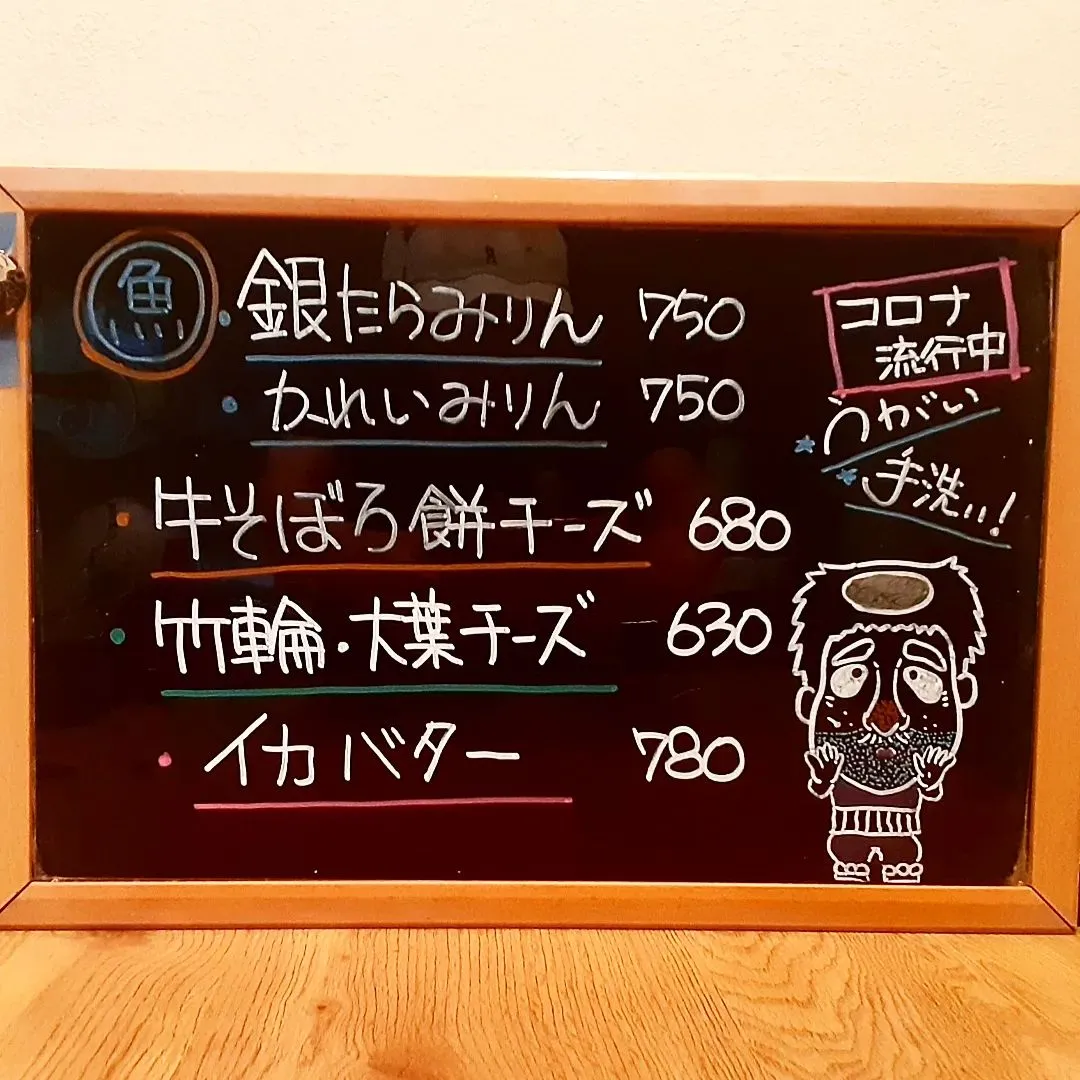 魚
・銀たらみりん 750
・かれいみりん 750
・牛そぼろ餅チーズ 680
・竹輪・大葉チーズ 630
・イカバター 780
コロナ
流行中
★うがい
★手洗い!